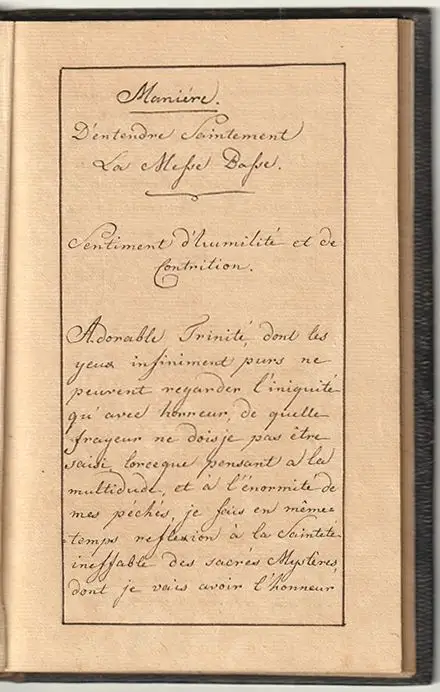 Maniére.
D'entendre Saintement
La Messe Basse.
Sentiment d'humilité et de
Contrition.
Adorable Trinité, dont les
yeux infiniment purs ne
peuvent regarder l'iniquité
qu'avec horreur, de quelle
frayeur ne dois je pas être
saisi, lorceque pensant a la
multidude, et a l'énormité de
mes péchés, je fais en même-
temps reflexion à la Sainteté
ineffable des sacrés Mystères,
dont je vais avoir l'honneur